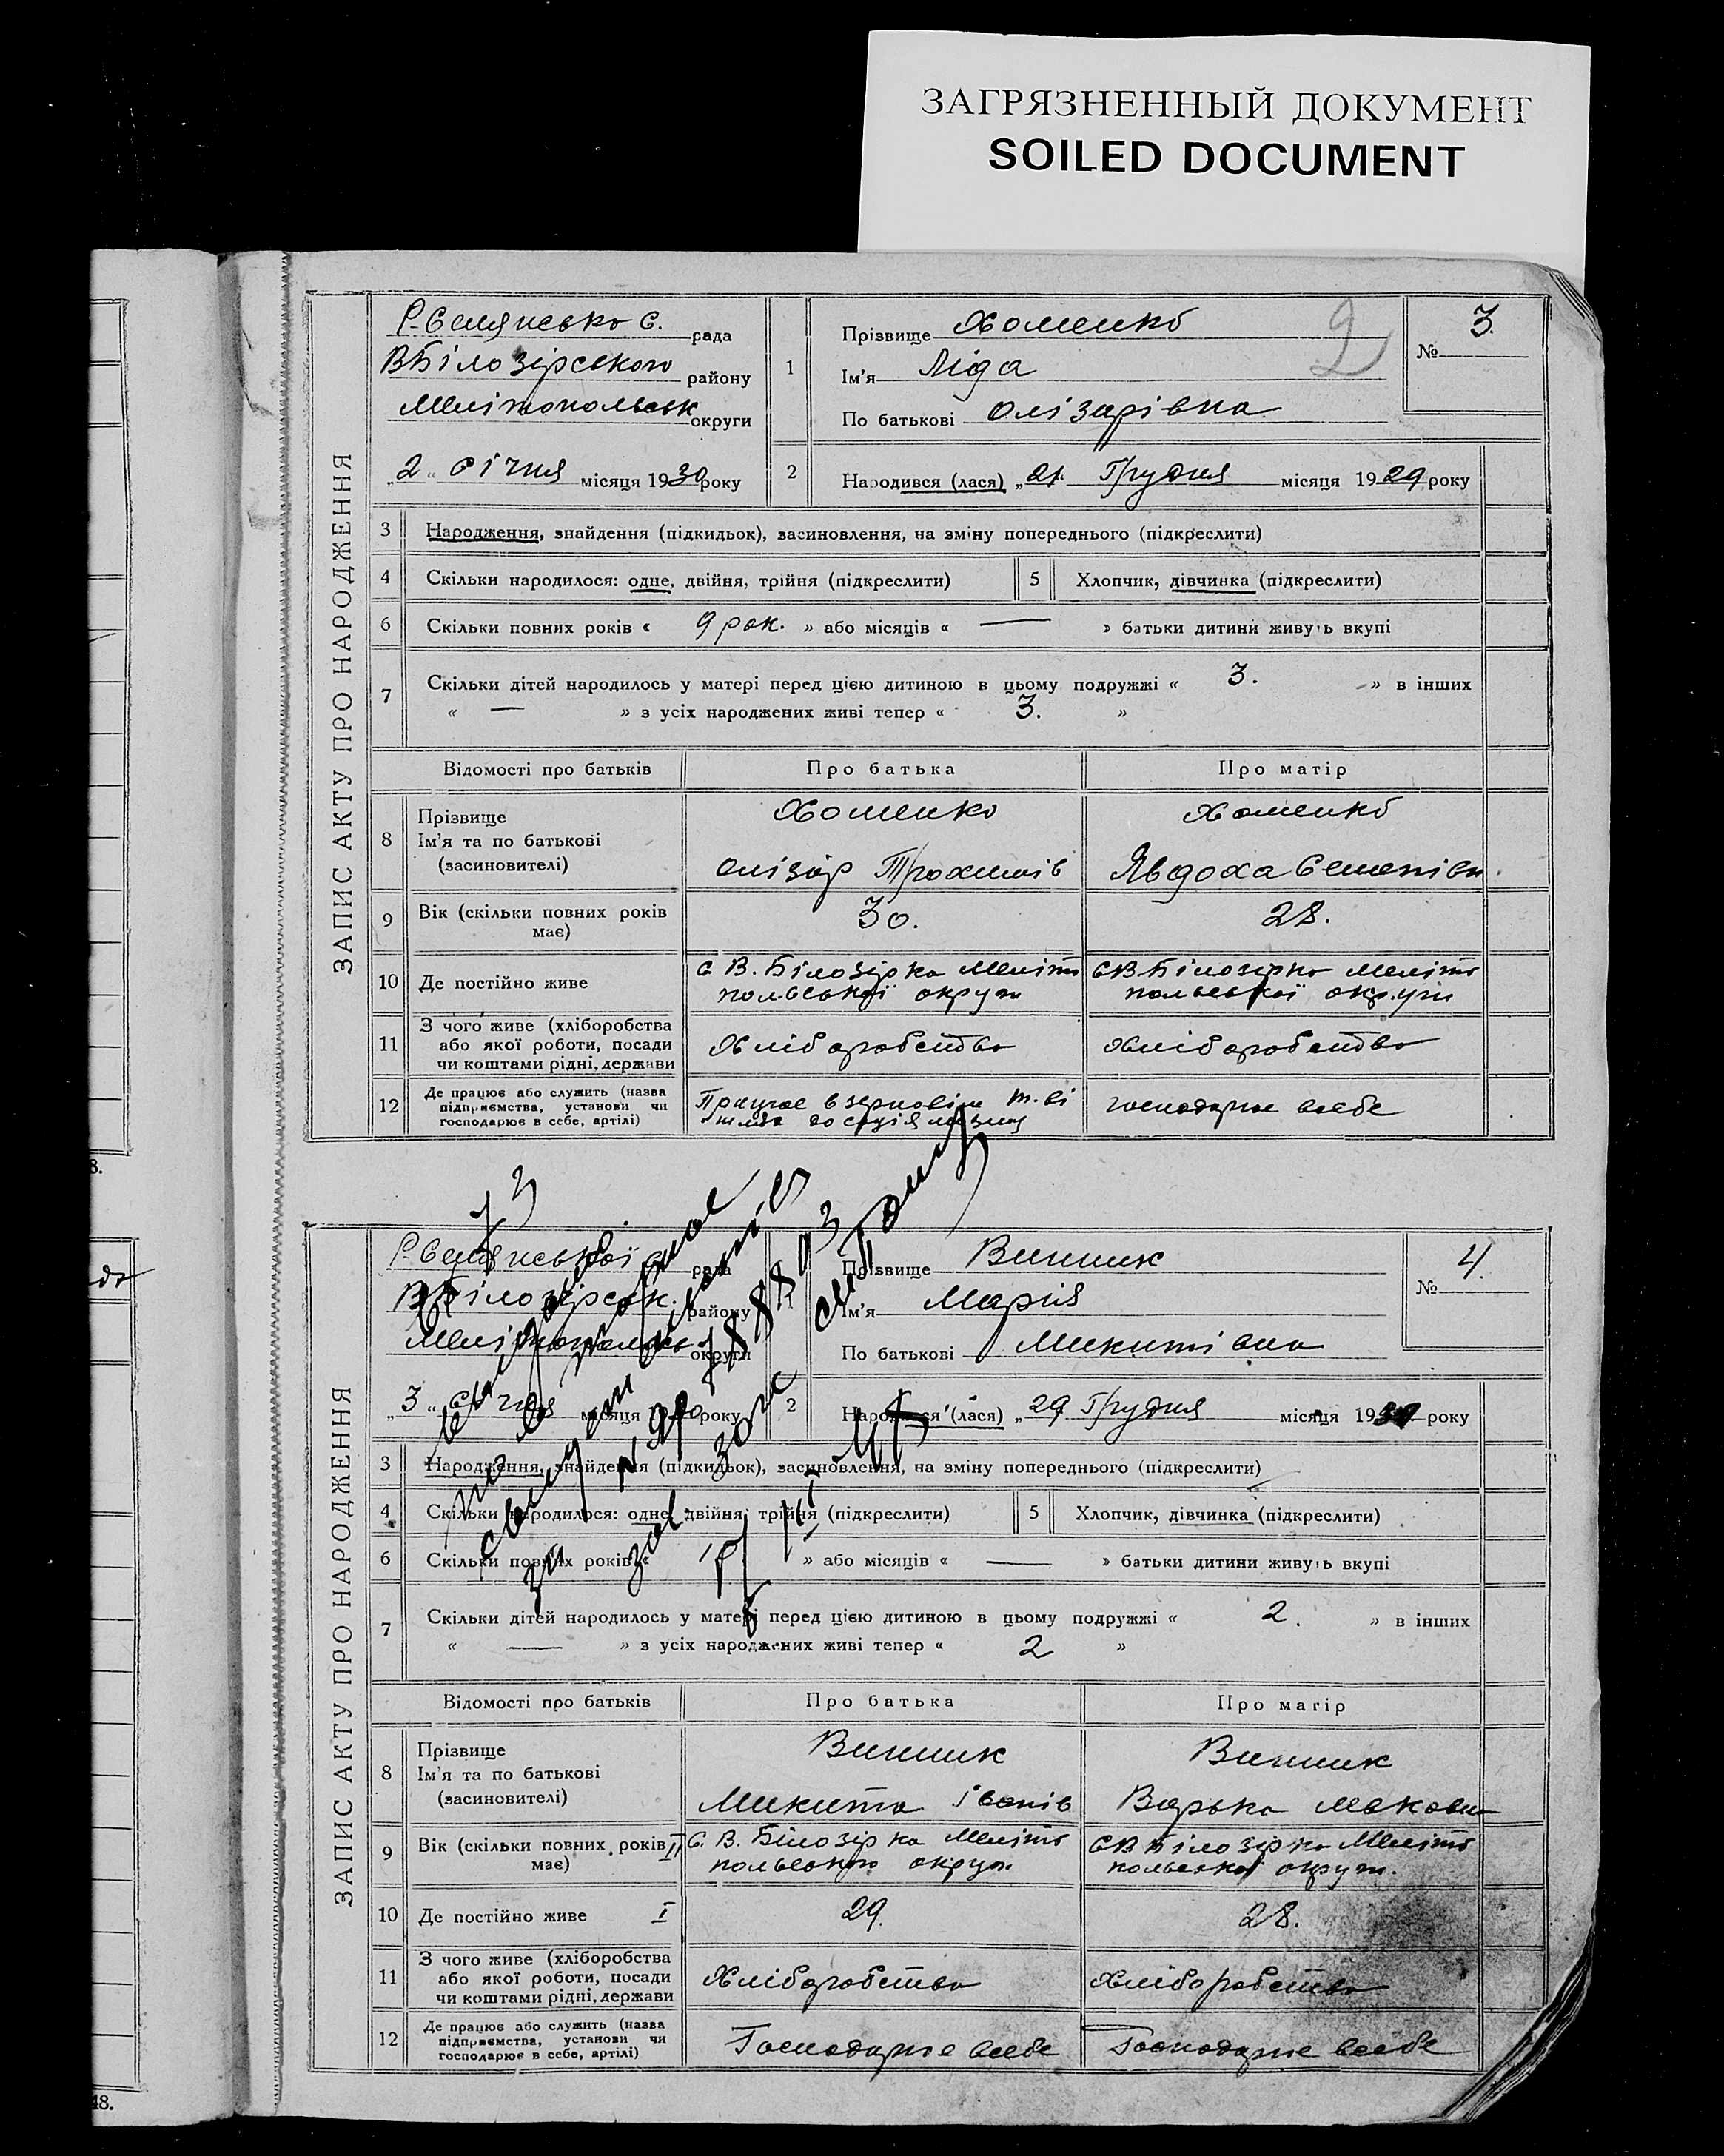 ЗАГРЯЗНЕННЫЙ ДОКУМЕНТ
SOILED DOCUMENT
ЗАПИС АКТУ ПРО НАРОДЖЕННЯ
рада
ВБілозірського району
Мелітопольськ округи
„2„ Січня місяця 1930 року
1
Прізвище Хоменко
Ім'я Ліда
По батькові Олізарівна
2
№ 3.
2
Народився (лася) „21. Грудня місяця 1929 року
3 Народження, знайдення (підкидьок), засиновлення, на зміну попереднього (підкреслити)
4 Скільки народилося: одне, двійня, трійня (підкреслити) 5 Хлопчик, дівчинка (підкреслити)
6 Скільки повних років « 9 рок. » або місяців « — » батьки дитини живуть вкупі
7 Скільки дітей народилось у матері перед цією дитиною в цьому подружжі « 3. » в інших
« — » з усіх народжених живі тепер « 3. »
Відомості про батьків Про батька Про матір
8 Прізвище Ім'я та по батькові (засиновителі)
Хоменко Хоменко
Олізар Трохимів Явдоха Семенівн.
9 Вік (скільки повних років має) 30. 28.
10 Де постійно живе
С В. Білозірка Меліто СВ Білозірка Меліто
польської округи польської округи
11 З чого живе (хліборобства або якої роботи, посади чи коштами рідні, держави
Хліборобство Хліборобство
12 Де працює або служить (назва підприємства, установи чи господарює в себе, артілі)
Працює в зерновім т-ві господарює всебе
ЗАПИС АКТУ ПРО НАРОДЖЕННЯ
рада
ВБілозірськ. району
Мелітопольськ округи
„3„ Січня місяця року
1
Прізвище Винник
Ім'я Марія
По батькові Микитівна
№ 4.
2
Народився (лася) „29 Грудня місяця 19 року
3 Народження, знайдення (підкидьок), засиновлення, на зміну попереднього (підкреслити)
4 Скільки народилося: одне двійня, трійня (підкреслити) 5 Хлопчик, дівчинка (підкреслити)
6 Скільки повних років « » або місяців « — » батьки дитини живуть вкупі
7 Скільки дітей народилось у матері перед цією дитиною в цьому подружжі « 2. » в інших
« — » з усіх народжених живі тепер « 2 »
Відомості про батьків Про батька Про матір
8 Прізвище Ім'я та по батькові (засиновителі)
Винник Винник
Микита Іванів Варька
9 Вік (скільки повних років має) II
С. В. Білозірка Меліто СВ Білозірка Меліто
польського округи польської округи.
10 Де постійно живе I 29. 28.
11 З чого живе (хліборобства або якої роботи, посади чи коштами рідні, держави
Хліборобство Хліборобство
12 Де працює або служить (назва підприємства, установи чи господарює в себе, артілі)
Господарює всебе Господарює всебе
48.